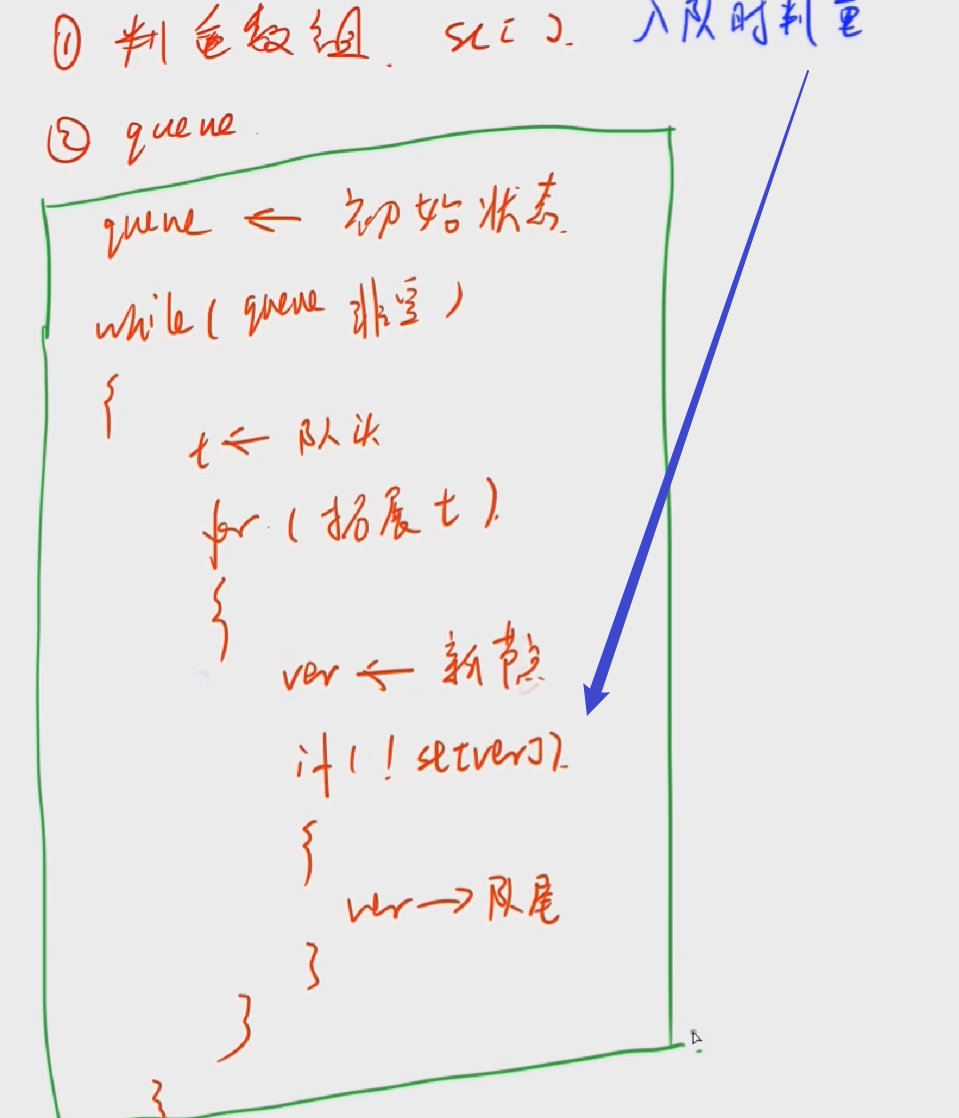 ① 判重数组. st[]. 入队时判重
② queue.
queue ← 初始状态.
while( queue 非空 )
{
t ← 队头
for. ( 拓展 t )
{
ver ← 新节点
if ( ! st[ver] ).
{
ver → 队尾
}
}
}